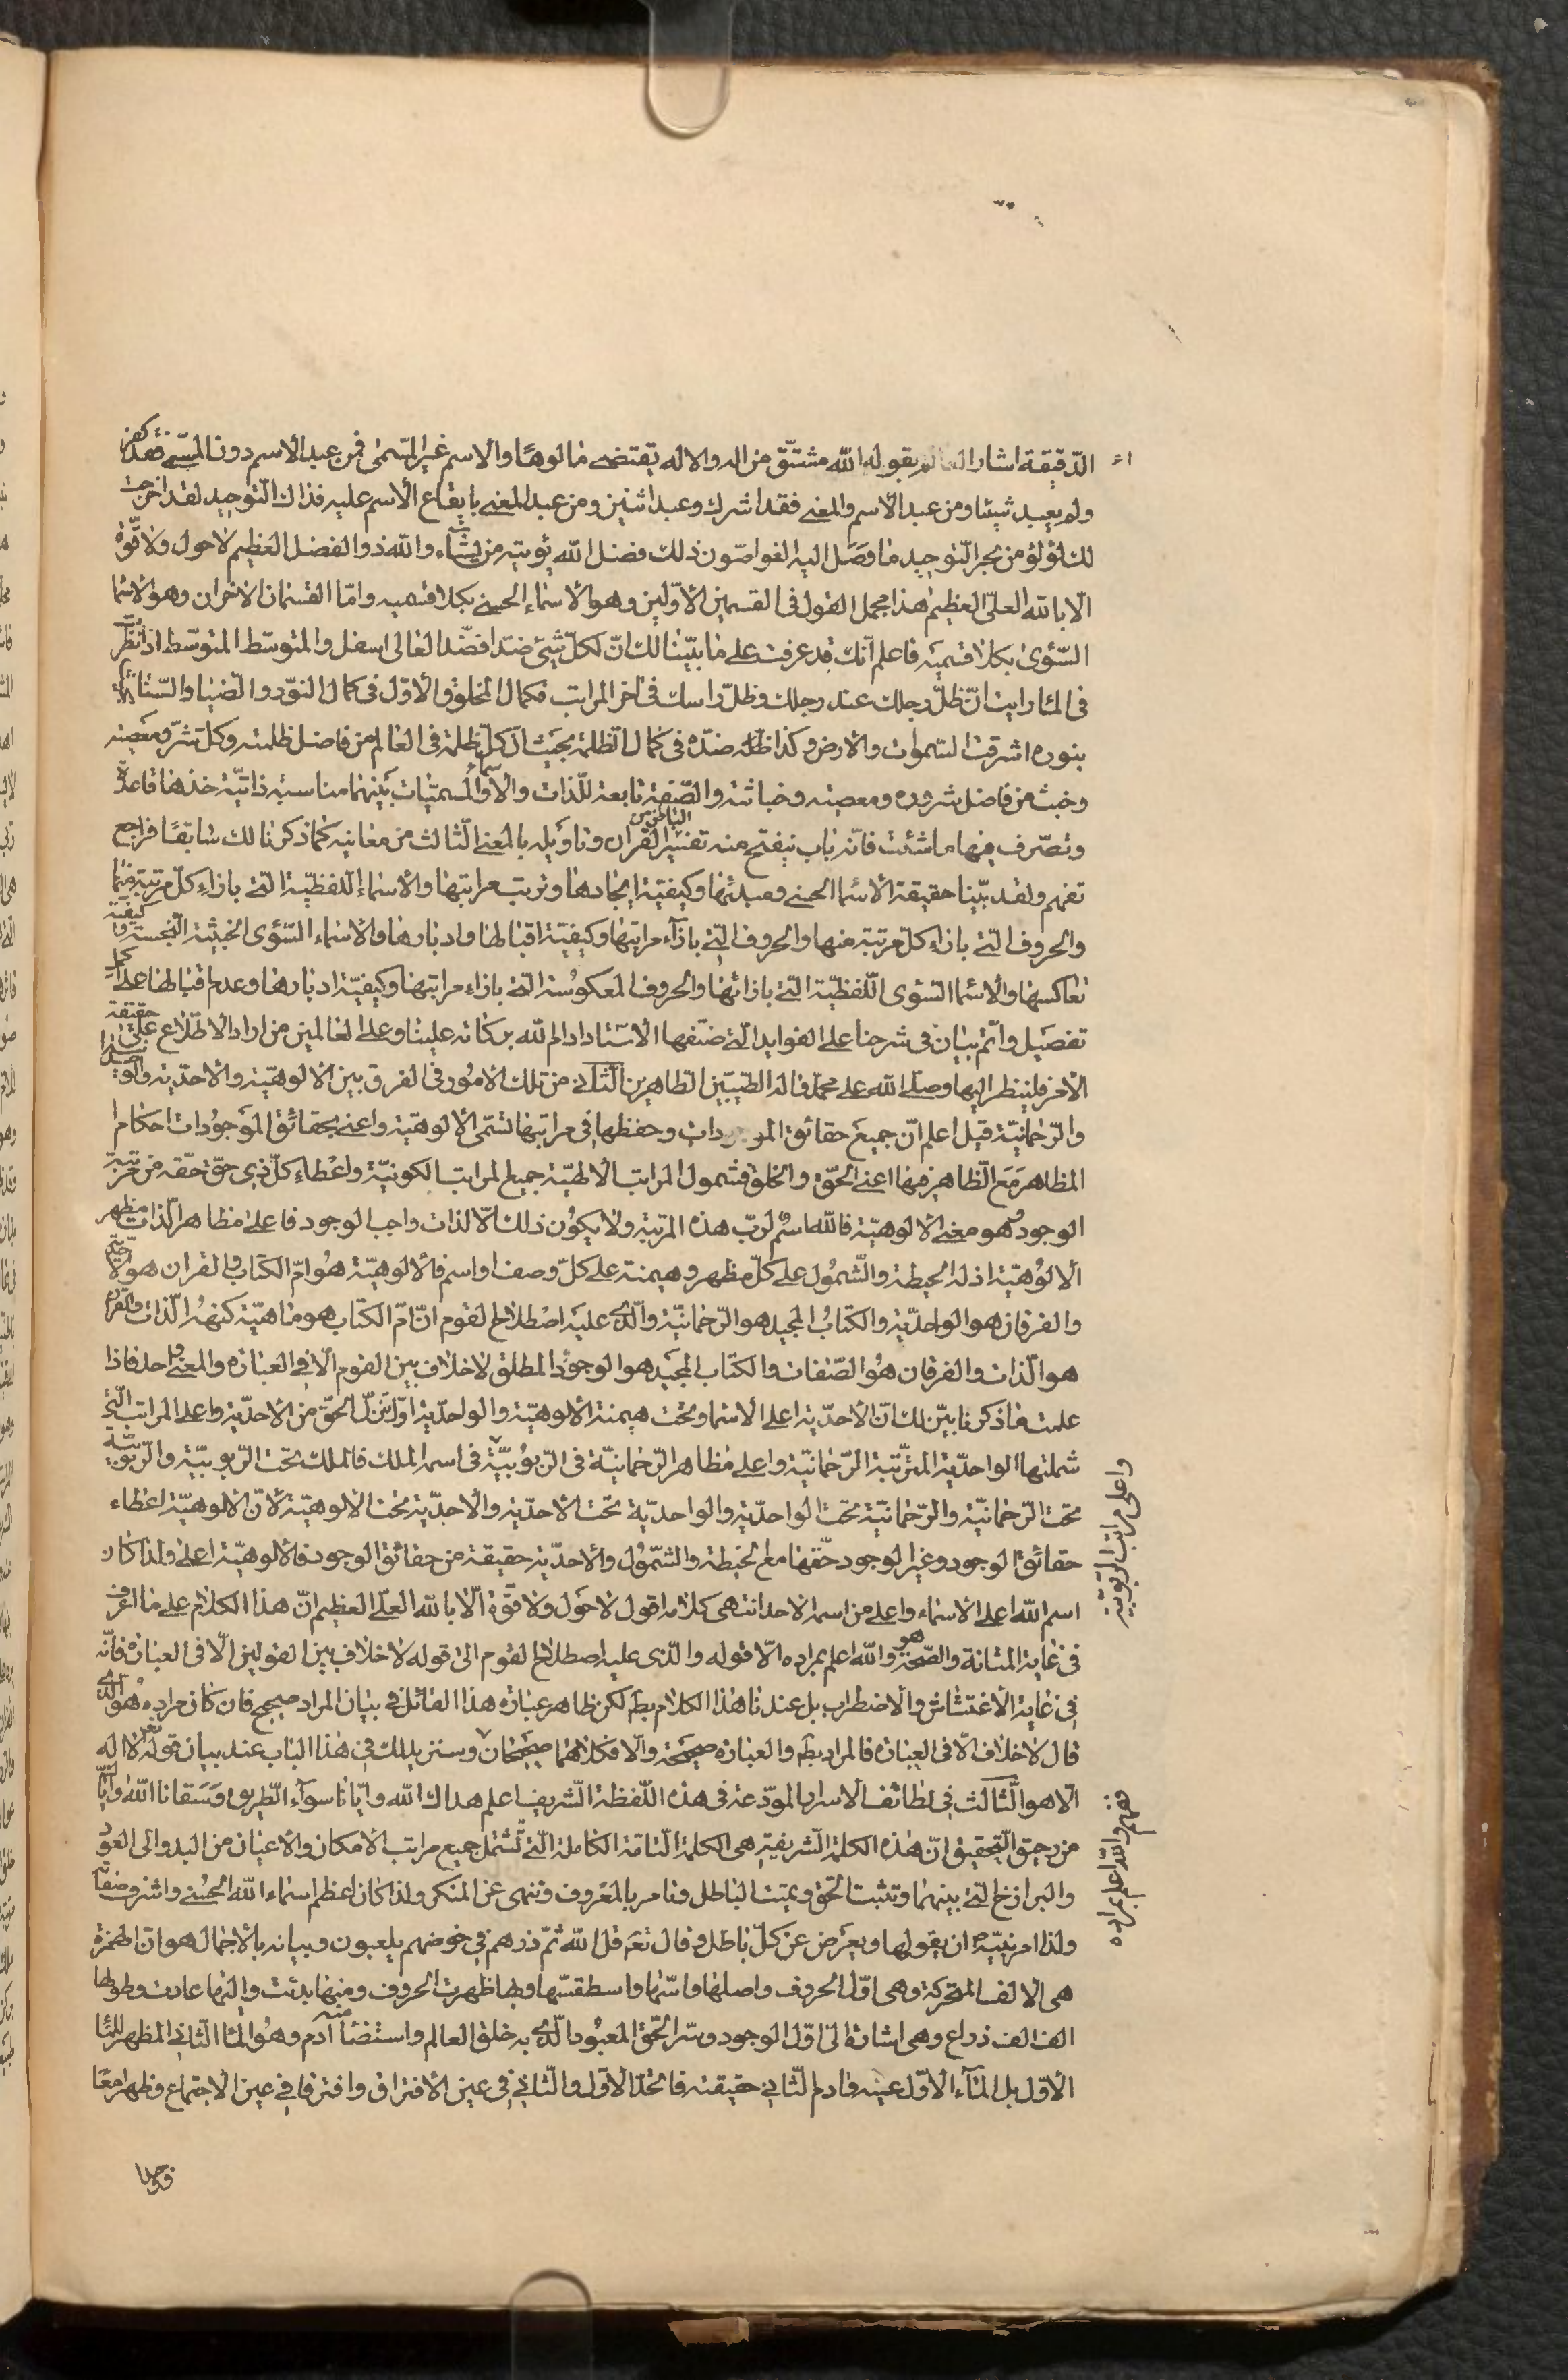 الدّقيقة اشار العالم بقوله الله مشتّق من اله والاله يقتضى مالوهًا والاسم غير المسّمى فمن عبد الاسم دون المسّمى فقد كفر
ولم يعبد شيئا ومن عبد الاسم والمعنى فقد اشرك وعبد اثنين ومن عبد المعنى بايقاع الاسم عليه فذاك التوحيد لقد اخرجت
لك لؤلؤ من بحر التوحيد ما وصل اليه الغواصّون ذلك فضل الله يؤتيه من يشآء والله ذو الفضل العظيم لا حول ولا قوّة
الّا بالله العلىّ العظيم هذا مجمل القول فى القسمين الأوّلين وهو الأسماء الحسنى بكلا قسميه وامّا القسمان الاخران وهو الاسما
السّوئ بكلا قسميه فاعلم انّك قد عرفت على ما بيّنا لك انّ لكلّ شيئ ضدّا فضّد العالى اسفل والمتوسّط المتوسّط اذا نظرت
فى الماء رايت انّ ظلّ رجلك عند رجلك وظلّ راسك فى آخر المراتب فكمال المخلوق الاوّل فى كمال النوّر والضّيا والسّنا
بنوره اشرقت السّموات والارض وكذا ظلّه ضدّه فى كمال الظلمة بحيث انّ كلّ ظلمة فى العالم من فاضل ظلمته وكلّ شرّ ومعصية
وخبث من فاضل شروره ومعصيته وخباثته والصّفة تابعة للذّات والأسماء والمسميّات بينهما مناسبة ذاتيّة خذها قاعدة
وتصّرف فيها ما شئت فانّه باب ينفتح منه تفسير الباطن من القرآن وتاويله بالمعنى الثّالث من معانيه كما ذكرنا لك سابقًا فراجع
تفهم ولقد بيّنا حقيقة الأسما الحسنى ومبدئها وكيفيّة ايجادها وترتب مراتبها والاسماء اللّفظيّة الّتى بازاء كلّ مرتبة منها
والحروف الّتى بازاء كلّ مرتبة منها والحروف الّتى بازآء مراتبها وكيفيّة اقبالها وادبارها والاسماء السّوئ الخبيثة النّجسة وكيفيّة
تعاكسها والأسما السّوئ اللّفظيّة الّتى بازائها والحروف المعكوسة الّتى بازاء مراتبها وكيفيّة ادبارها وعدم اقبالها على اكمل
تفصيل واتّم بيان فى شرحنا على الفوايد الّتى صنّفها الاستاد ادام الله بركاته علينا وعلى العالمين من اراد الاطّلاع على حقيقة
الأمر فلينظر اليها وصلّى الله على محمّد وآله الطّيبّين الطاهرين الثّانى من تلك الامور فى الفرق بين الالوهيّة والاحدّية والواحديّة
والرّحمانيّة قيل اعلم انّ جميع حقائق الموجودات وحفظها فى مراتبها تسّمى الألوهيّة واعنى بحقائق الموجودات احكام
المظاهر مع الظّاهر فيها اعنى الحّق والخلق فشمول المراتب الالهيّة جميع المراتب الكونيّة واعطاء كلّ ذى حقّ حقّه من مرتبة
الوجود هو معنى الالوهيّة فالله اسم لربّ هذه المرتبة ولا يكون ذلك الّا لذات واجب الوجود فاعلى مظاهر الذّات مظهر
الالوهيّة اذ له الحيطة والشّمول على كلّ مظهر وهيمنة على كلّ وصف او اسم فالألوهيّة هو امّ الكتاب والقران هو الاحديّة
والفرقان هو الواحديّة والكتاب المجيد هو الرّحمانيّة والّذى عليه اصطلاح القوم انّ امّ الكتاب هو ماهيّة كنه الذّات والقران
هو الذّات والفرقان هو الصّفات والكتاب المجيد هو الوجود المطلق لاخلاف بين القوم الّا فى العبارة والمعنى واحد فاذا
علمت ما ذكرنا بيّن لك انّ الأحدّية اعلى الاسما وتحت هيمنة الالوهيّة والواحديّة اوّل تنزّل الحقّ من الأحديّة واعلى المراتب الّتى
شملتها الواحدّية المترّتبة الرّحمانيّة واعلى مظاهر الرّحمانيّة فى الرّبوبيّة واعلى مراتب الرّبوبيّة فى اسمه الملك فالملك تحت الرّبوبيّة والرّبوبيّة
تحت الرّحمانيّة والرّحمانيّة تحت الواحدّية والواحديّة تحت الأحدّية والاحديّة تحت الالوهيّة لأنّ الالوهيّة اعطاء
حقائق الوجود وغير الوجود حقّها مع الحيطة والشّمول والأحدّية حقيقة من حقائق الوجود فالالوهيّة اعلى ولذا كان
اسم الله اعلى الاسماء واعلى من اسمه الاحد انتهى كلامه اقول لا حول ولا قوّة الّا بالله العلىّ العظيم انّ هذا الكلام على ما اعرف
فى غاية المتانة والصّحة هو والله اعلم بمراده الّا قوله والّذى عليه اصطلاح القوم الى قوله لاخلاف بين القولين الّا فى العبارة فانّه
فى غاية الاغتشاش والاضطراب بل عندنا هذا الكلام بط لكن ظاهر عبارة هذا القائل فى بيان المراد صحيح فان كان مراده هو الّذى
قال لاخلاف الّا فى العبارة فالمراد بط والعبارة صحيحة والّا فكلاهما صحيحان وسنزيدلك فى هذا الباب عند بيان قوله تعالى لا اله
الّا هو الثّالث فى لطائف الاسرار المودّعة فى هذه اللّفظة الشّريفة اعلم هداك الله وايّانا سوآء الطّريق وسقانا الله وايّاكم
من رحيق التّحقيق انّ هذه الكلمة الشّريفة هى الكلمة التّامّة الكاملة الّتى تشمل جميع مراتب الامكان والاعيان من البدو الى العود
والبرازخ الّتى بينهما وتثبت الحقّ ويميت الباطل وتامر بالمعروف وتنهى عن المنكر ولذا كان اعظم اسماء الله الحسنى واشرف صفاته
ولذا امر نبيّه ان يقولها ويعرض عن كلّ باطل وقال تع قل الله ثمّ ذرهم فى خوضهم يلعبون وبيانه بالاجمال هو انّ الهمزة
هى الالف المتحركة وهى اوّل الحروف واصلها واسّها واسطقسّها وبها ظهرت الحروف ومنها بدئت واليها عادت وطولها
الف الف ذراع وهى اشارة الى اوّل الوجود وسرّ الحّق المعبود الّذى به خلق العالم واستضئاء منه آدم وهو الماء الثّانى المظهر للماء
الاوّل بل المآء الاوّل عينه وآدم الثّانى حقيقته فاتّحد الأوّل والثّانى فى عين الافتراق وافترقا فى عين الاجتماع وظهرا معًا
واعلى مراتب الرّبوبيّة
والله اعلم بمراده